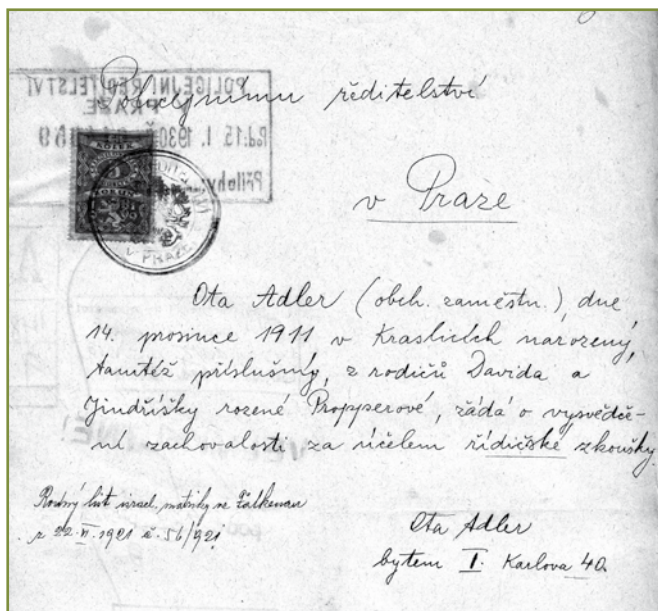 Policejnímu ředitelství
POLICEJNÍ ŘEDITELSTVÍ
PRAZE
Pod: 15. I. 1930
Přílohy:
v Praze
KOLEK
PRAZE
Ota Adler (obch. zaměstn.), dne
14. prosince 1911 v Kraslicích narozený,
tamtéž příslušný, z rodičů Davida a
Jindřišky rozené Propperové, žádá o vysvědče-
ní zachovalosti za účelem řidičské zkoušky.
Rodný list israel. matriky ve Falkenau
z 22. VI. 1921 č. 56/921
Ota Adler
bytem I. Karlova 40.